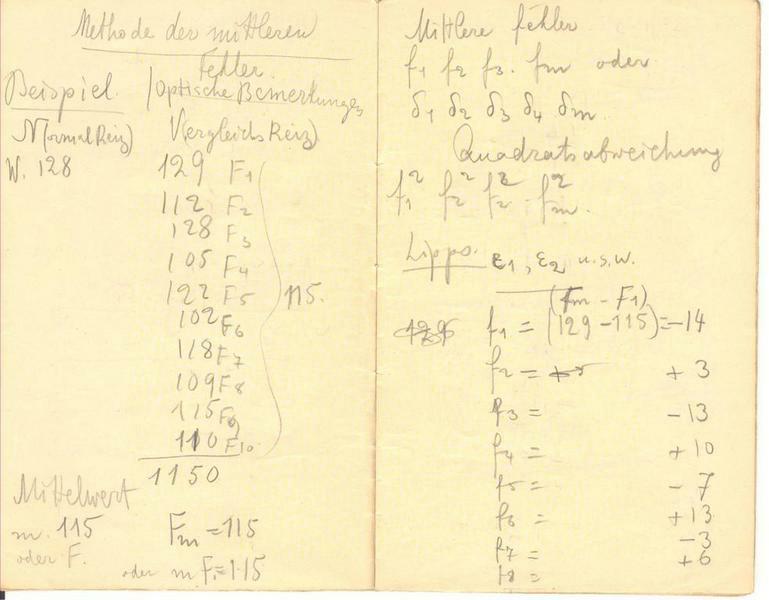 Methode der mittleren
Fehler.
Beispiel. /Optische Bemerkungen
N(ormalReiz) V(ergleichsReiz)
W. 128
129 F1
112 F2
128 F3
105 F4
122 F5
115.
102 F6
118 F7
109 F8
115 F9
110 F10
1150
Mittelwert
m. 115 Fm = 115
oder F.
oder m F. = 115
Mittlere Fehler
f1 f2 f3. fm oder
δ1 δ2 δ3 δ4 δm
Quadratsabweichung
f1² f2² f2² fm².
Lipps. ε1, ε2 u.s.w.
(Fm - F1)
f1 = (129 - 115) = -14
f2 = + 3
f3 = - 13
f4 = + 10
f5 = - 7
f6 = + 13
f7 = - 3
f8 = + 6